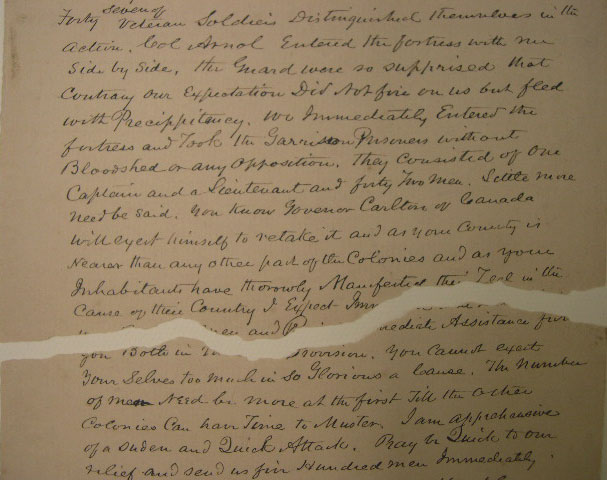 seven of
Forty Veteran Soldiers Distinguished themselves in the
action. Col Arnol Entered the fortress with me
Side by Side. the Guard were so supprised that
Contrary our Expectation Did Not fire on us but fled
with Precippitency. We Immediately Entered the
fortress and Took the Garrison Prisners without
Bloodshed or any Opposition. They Consisted of One
Captain and a Lieutenant and forty Two Men. Little more
need be said. You Know Govenor Carlton of Canada
will exert himself to retake it and as your County is
Nearer than any other part of the Colonies and as your
Inhabitants have thoroly Manifested their Zeal in the
Cause of their Country I Expect Imm
men and ediate Assistance from
you Both in Provision. You cannot exert
Your Selves too much in So Glorious a Cause. The Number
of men Need be more at the first Till the other
Colonies Can have Time to Muster. I am apprehensive
of a suden and Quick Attack. Pray be Quick to our
relief and send us five Hundred men Immediately.